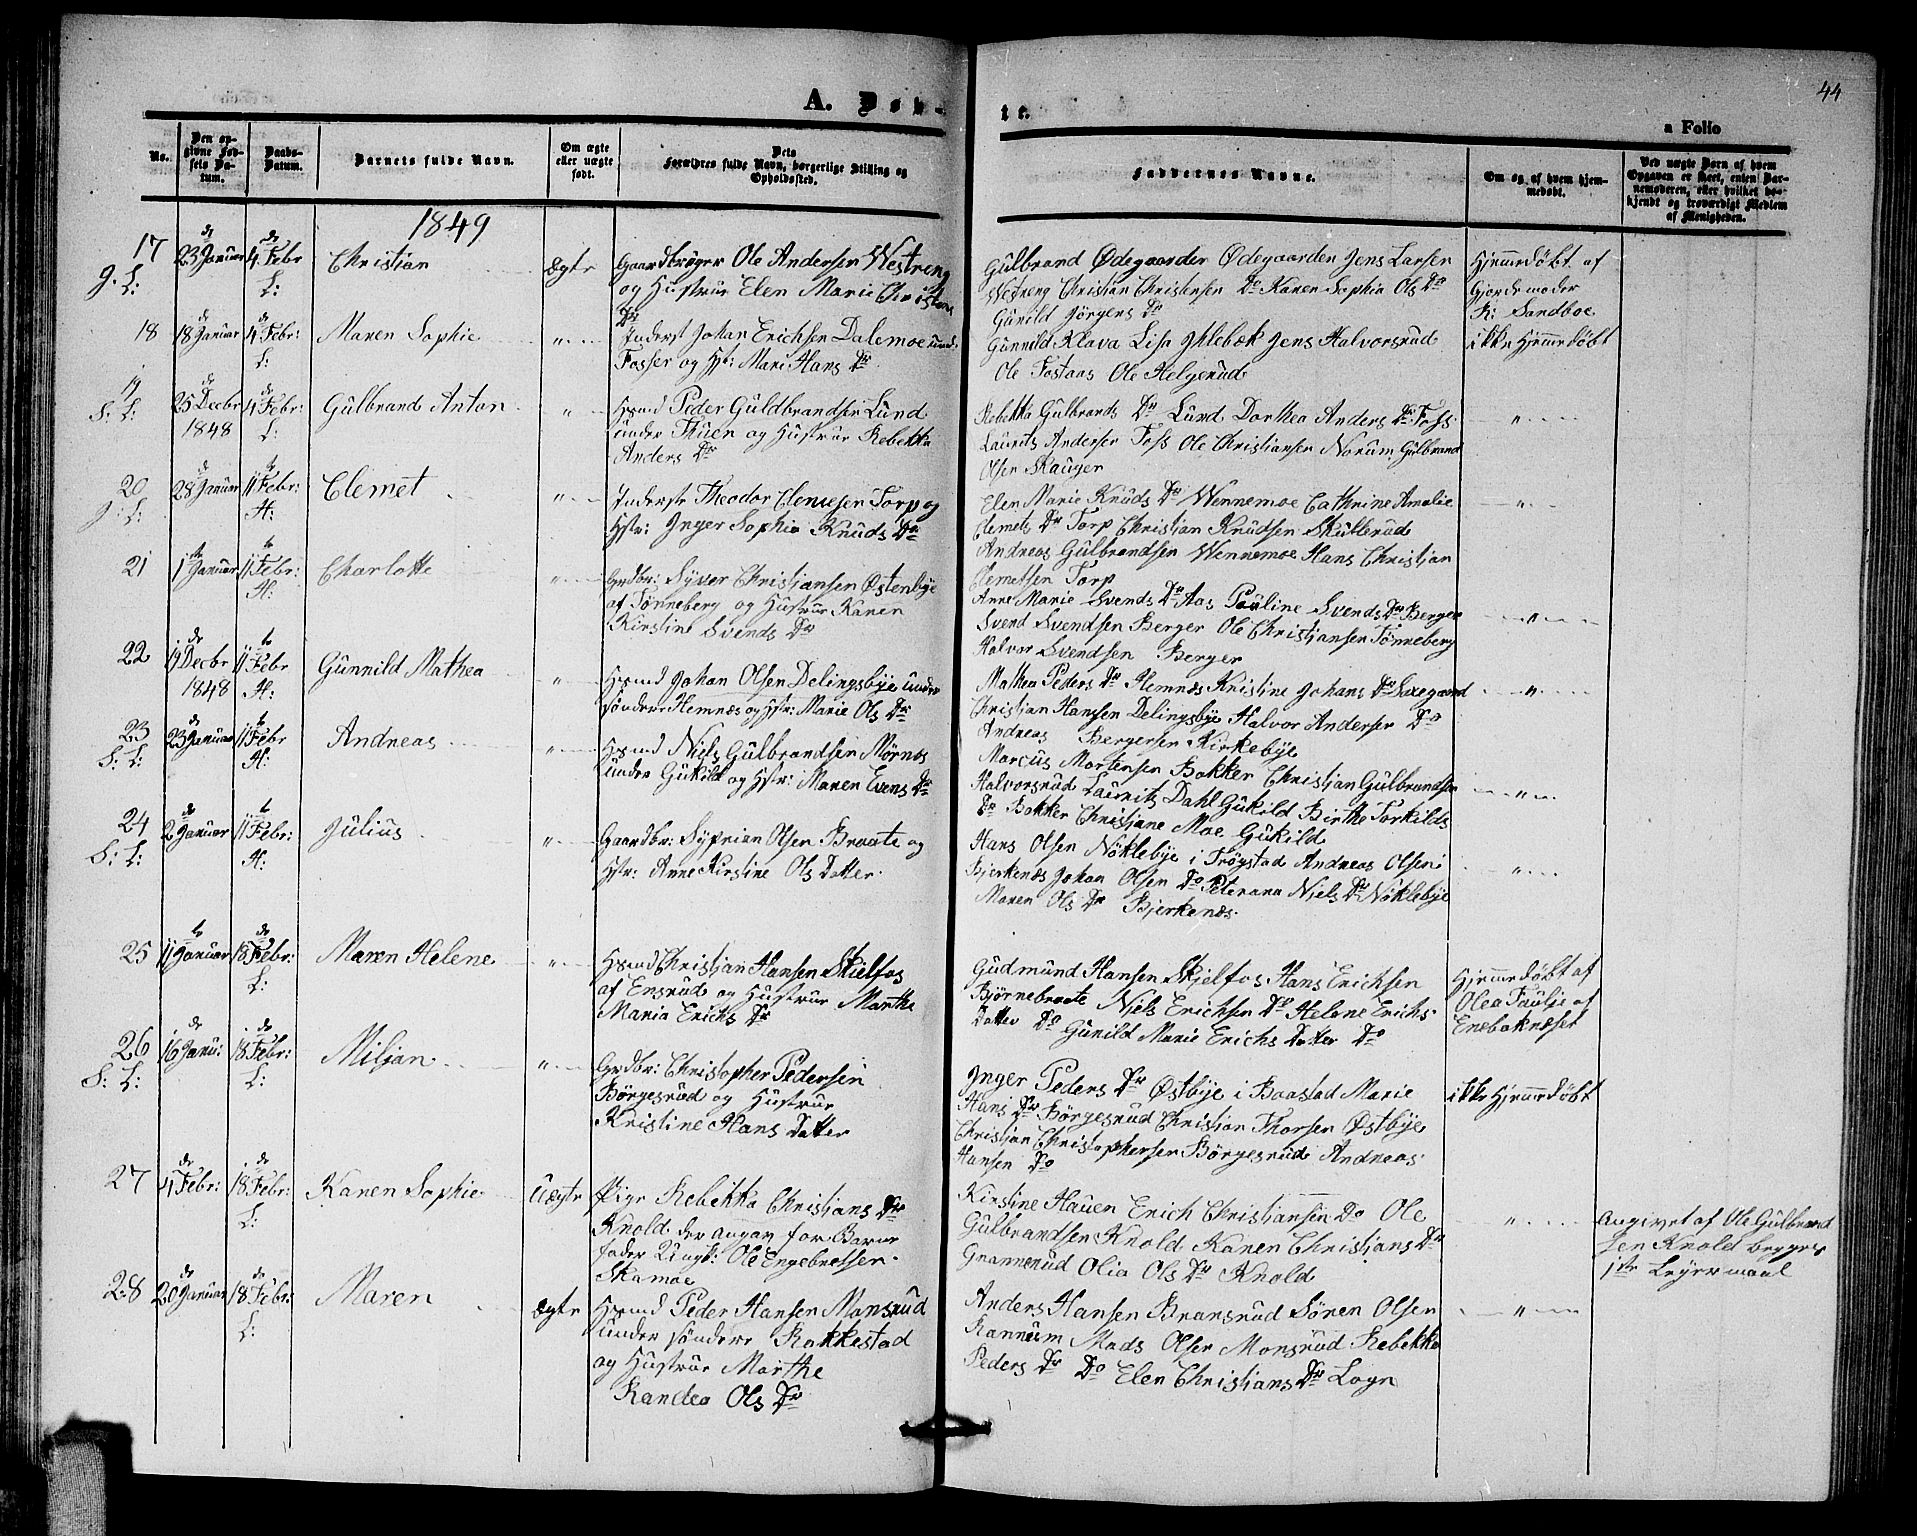 44
A. Døb-
te.
a Folio
No.
Den op-
givne Fød-
sels Da-
tum.
Daabs-
Datum.
Barnets fulde Navn.
Om ægte
eller uægte
født.
Dets
Forældres fulde Navn, borgerlige Stilling og
Opholdssted.
Faddernes Navne.
Om og af hvem hjem-
medøbt.
Ved uægte Barn af hvem
Opgaven er skeet, enten Bar-
nemoderen, eller hvilket be-
kjendt og troværdigt Medlem
af Menigheden.
1849
17
G. L:
de
23 Januar
de
4 Febr
L:
Christian
Ægte
Gaardbruger Ole Andersen Westreng
og Hustrue Elen Marie Christians
Dr
Gulbrand Ødegaarden Ødegaarden Jens Larsen
Westreng Christian Christensen Do Karen Sophia Ols Dr
Gunild Jørgens Dr
Hjemmedøbt af
Gjordemoder
K: Sandboe
18
de
18 Januar
de
4 Febr:
L:
Maren Sophie
"
Inderst Johan Erichsen Dalemoe und:
Fosser og Hst: Mari Hans Dr
Gunnild Klava Lisa Ihlebæk Jens Halvorsrud
Ole Fostaas Ole Helgerud
ikke Hjemmedøbt
19
S: L:
de
25 Decbr
1848
de
4 Febr:
L:
Gulbrand Anton
"
Husmd Peder Guldbrandsen Lund
under Thuen og Hustrue Rebekka
Anders Dr
Rebekka Gulbrands Dr Lund Dorthea Anders Dr Foss
Laurits Andersen Foss Ole Christiansen Norum Gulbrand
Olsen Skauger
"
20
G: L:
de
28 Januar
te
11 Febr:
H:
Clemet
"
Inderste Theodor Clemesen Torp og
Hst: Inger Sophia Knuds Dr
Elen Marie Knuds Dr Wennemoe Cathrine Amalie
Clemets Dr Torp Christian Knudsen Skullerud
Andreas Gulbrandsen Wennemoe Hans Christian
Clemetsen Torp
"
21
te
1 Januar
te
11 Febr:
H:
Charlotte
"
Grdbr: Syver Christjansen Østenbye
af Tønneberg og Hustrue Karen
Kirstine Svends Dr
Anne Marie Svends Dr Aas Pauline Svends Dr Berger
Svend Svendsen Berger Ole Christjansen Tønneberg
Halvor Svendsen Berger
"
22
de
19 Decbr
1848
te
11 Febr
H:
Gunnild Mathea
"
Husmd Johan Olsen Delingsbye under
søndere Hemnæs og Hst: Marie Ols Dr
Mathea Peders Dr Hemnæs Kristine Johans Dr Saxegaard
Christjan Hansen Delingsbye Halvor Andersen Do
Andreas Bergersen Kirkebye
"
23
S: L:
de
23 Januar
te
11 Febr
H:
Andreas
"
Husmd Niels Gulbrandsen Mørnes
under Gukild og Hst: Maren Evens Dr
Marcus Mortensen Bakker Christjan Gulbrandsen
Halvorsrud Laurits Dahl Gukild Birthe Torkilds
Dr Bakker Christjane Moe Gukild
"
24
S: L:
de
2 Januar
te
11 Febr:
H:
Julius
"
Gaardbr: Syprian Olsen Braate og
Hst: Anne Kirstine Ols Datter
Hans Olsen Nøklebye i Trøgstad Andreas Olsen
Bjerkenæs Johan Olsen Do Peterana Niels Dr Nøklebye
Maren Ols Dr Bjerkenæs
"
25
te
11 Januar
de
18 Febr:
L:
Maren Helene
"
Husmd Christjan Hansen Skjelfos
af Ensrud og Hustrue Marthe
Maria Erichs Dr
Gudmund Hansen Skjelfos Hans Erichsen
Bjørnebraate Niels Erichsen Do Helene Erichs
Datter Do Gunild Marie Erichs Datter Do
Hjemmedøbt af
Olea Paulse af
Enebaknæset
26
S: L:
de
16 Janu:
de
18 Febr:
L:
Miljan
"
Grdbr: Christopher Pedersen
Børgesrud og Hustrue
Kristine Hans Datter
Inger Peders Dr Østbye i Baastad Marie
Hans Dr Børgesrud Christian Thorsen Østbye
Christjan Christophersen Børgesrud Andreas
Hansen Do
ikke Hjemmedøbt
27
de
4 Febr:
de
18 Febr:
L:
Karen Sophie
Uægte
Pige Rebekka Christjans Dr
Knold der angav for Barne
fader Ungk: Ole Engebretsen
Skamoe
Kirstine Hauen Erich Christiansen Do Ole
Gulbrandsen Knold Karen Christjans Dr
Grannerud Olia Ols Dr Knold
"
angivet af Ole Gulbrand
sen Knold begges
1ste Leiermaal
28
de
20 Januar
de
18 Febr:
L:
Maren
Ægte
Husmd Peder Hansen Monsrud
under søndere Rakkestad
og Hustrue Marthe
Randea Ols Dr
Anders Hansen Bransrud Søren Olsen
Rannum Mads Olsen Monsrud Rebekka
Peders Dr Do Elen Christjans Dr Logn
"